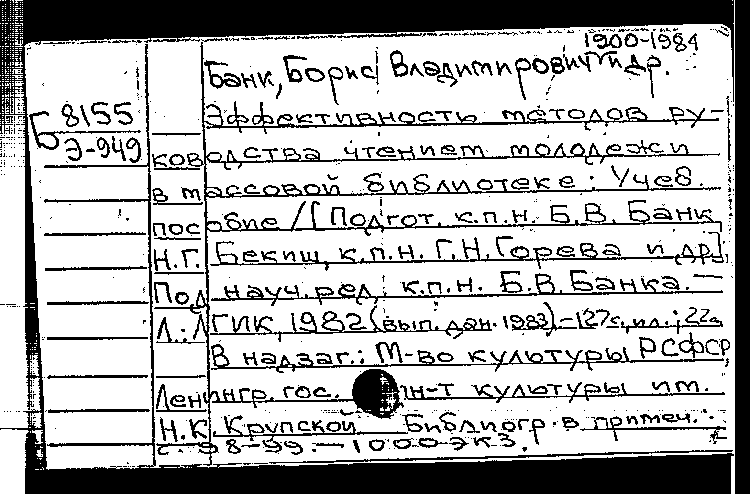 1900-1984
Банк, Борис Владимирович и др.
Б 8155
Э-949
Эффективность методов ру-
ководства чтением молодежи
в массовой библиотеке: Учеб.
пособие /[Подгот. к.п.н. Б.В. Банк
Н.Г. Бекиш, к.п.н. Г.Н. Горева и др.];
Под науч. ред. к.п.н. Б.В. Банка. —
Л.: ЛГИК, 1982 (вып. дан. 1983). – 127с., ил.; 22см
В надзаг.: М-во культуры РСФСР,
Ленингр. гос. ин-т культуры им.
Н.К. Крупской Библиогр. в примеч.:
с. 98-99. — 1000 экз.